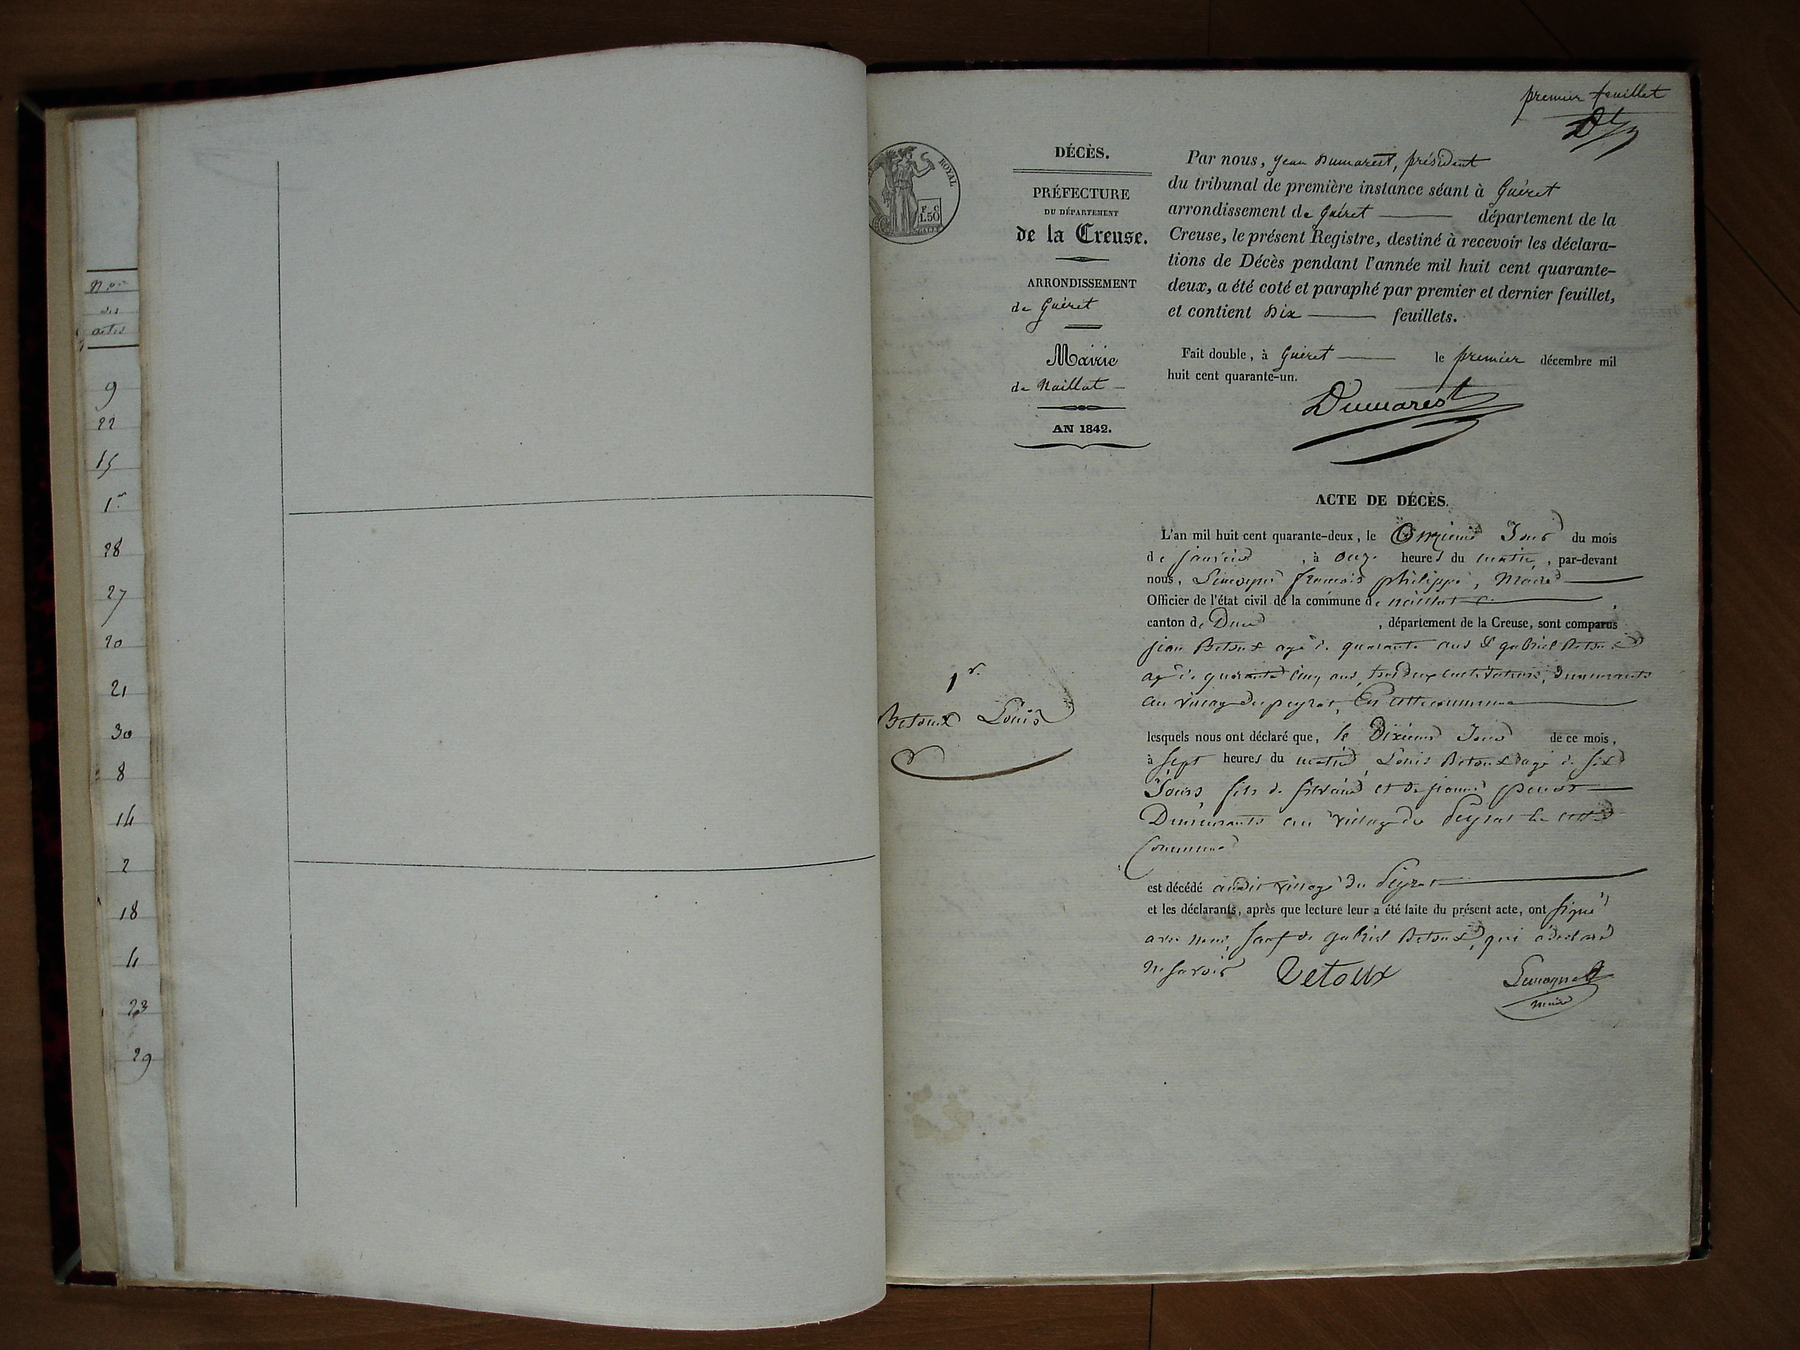 nos
des
actes
9
22
15
1er
28
27
20
21
30
8
14
2
18
4
23
29
premier feuillet
ROYAL
F. C.
1.50
DÉCÈS.
PRÉFECTURE
DU DÉPARTEMENT
de la Creuse.
ARRONDISSEMENT
de Guéret
Mairie
de Naillat
AN 1842.
Par nous, Jean Dumarest, président
du tribunal de première instance séant à Guéret
arrondissement de Guéret département de la
Creuse, le présent Registre, destiné à recevoir les déclara-
tions de Décès pendant l'année mil huit cent quarante-
deux, a été coté et paraphé par premier et dernier feuillet,
et contient Dix feuillets.
Fait double, à Guéret le premier décembre mil
huit cent quarante-un.
Dumarest
ACTE DE DÉCÈS.
L'an mil huit cent quarante-deux, le Onzieme Jour du mois
de janvier, à onze heures du matin, par-devant
nous, françois philippe, Maire
Officier de l'état civil de la commune de naillat
canton de Dun, département de la Creuse, sont comparus
jean Betoux agé de quarante ans & gabriel Betoux
agé de quarante cinq ans, tous deux cultivateurs, demeurants
au village du peyrat, En cette commune
1er
Betoux Louis
lesquels nous ont déclaré que, le Dixieme Jour de ce mois,
à sept heures du matin Louis Betoux agé de six
Jours fils de silvain et de jeanne
Demeurants au village du Peyrat En cette
Commune
est décédé audit village du Peyrat
et les déclarants, après que lecture leur a été faite du présent acte, ont signé
avec nous, sauf de gabriel Betoux, qui a declaré
ne savoir
Betoux
maire